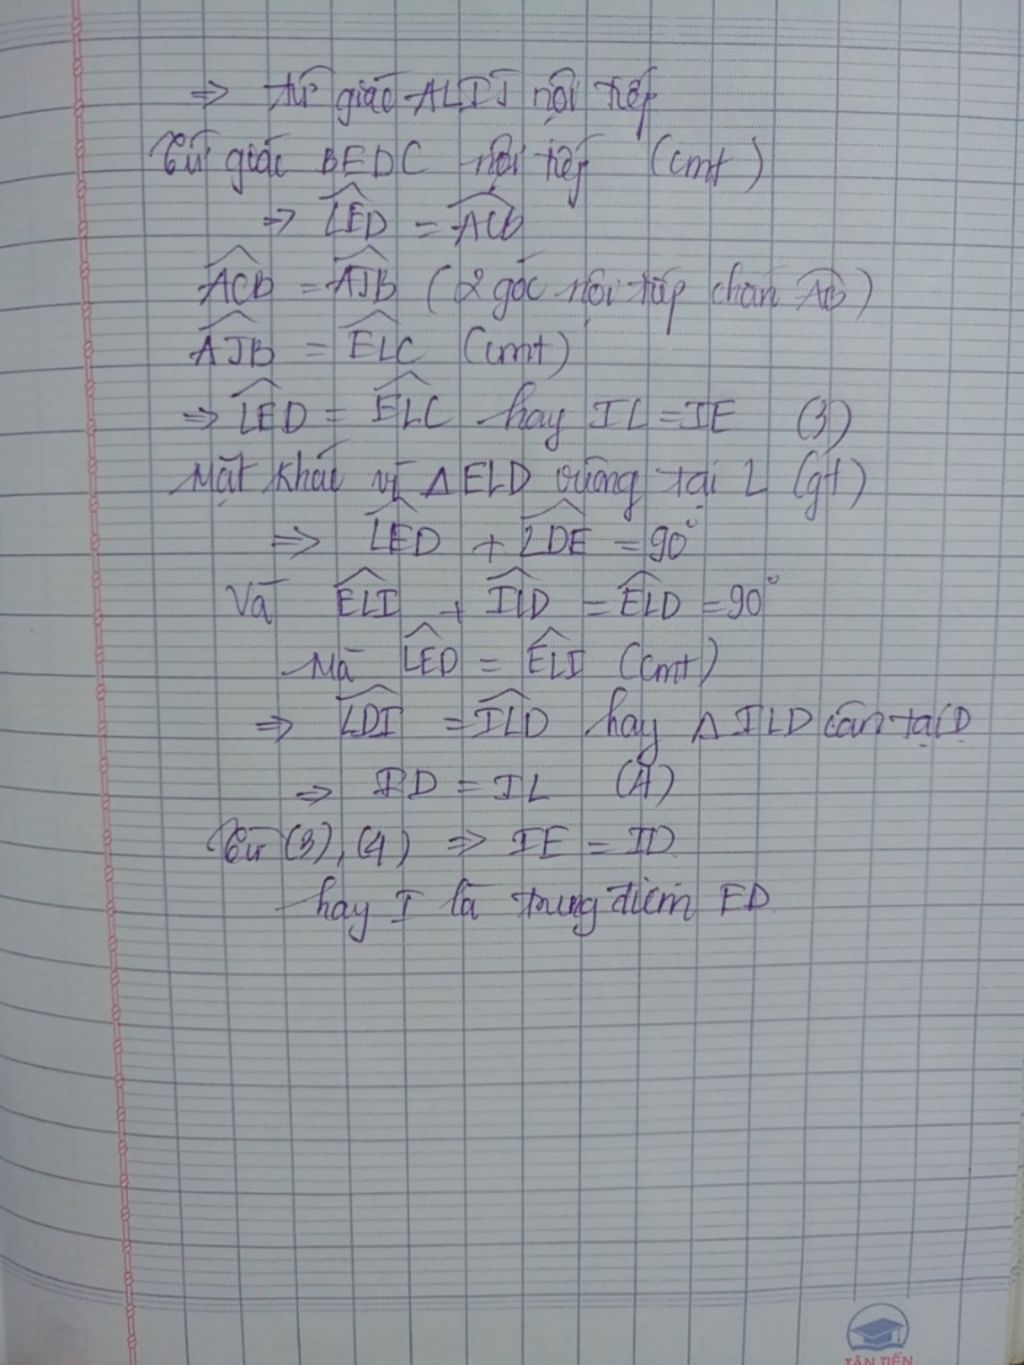 => tứ giác ALIJ nội tiếp
Tứ giác BEDC nội tiếp (cmt)
=> LED = ACB
ACB = AJB (2 góc nội tiếp chắn AB)
AJB = ELC (cmt)
=> LED = ELC hay IL = IE (3)
Mặt khác vì ΔELD vuông tại L (gt)
=> LED + LDE = 90°
Và ELI + ILD = ELD = 90°
Mà LED = ELI (cmt)
=> LDI = ILD hay Δ ILD cân tại D
=> ID = IL (4)
Từ (3), (4) => IE = ID
hay I là trung điểm ED
TÂN TIẾN